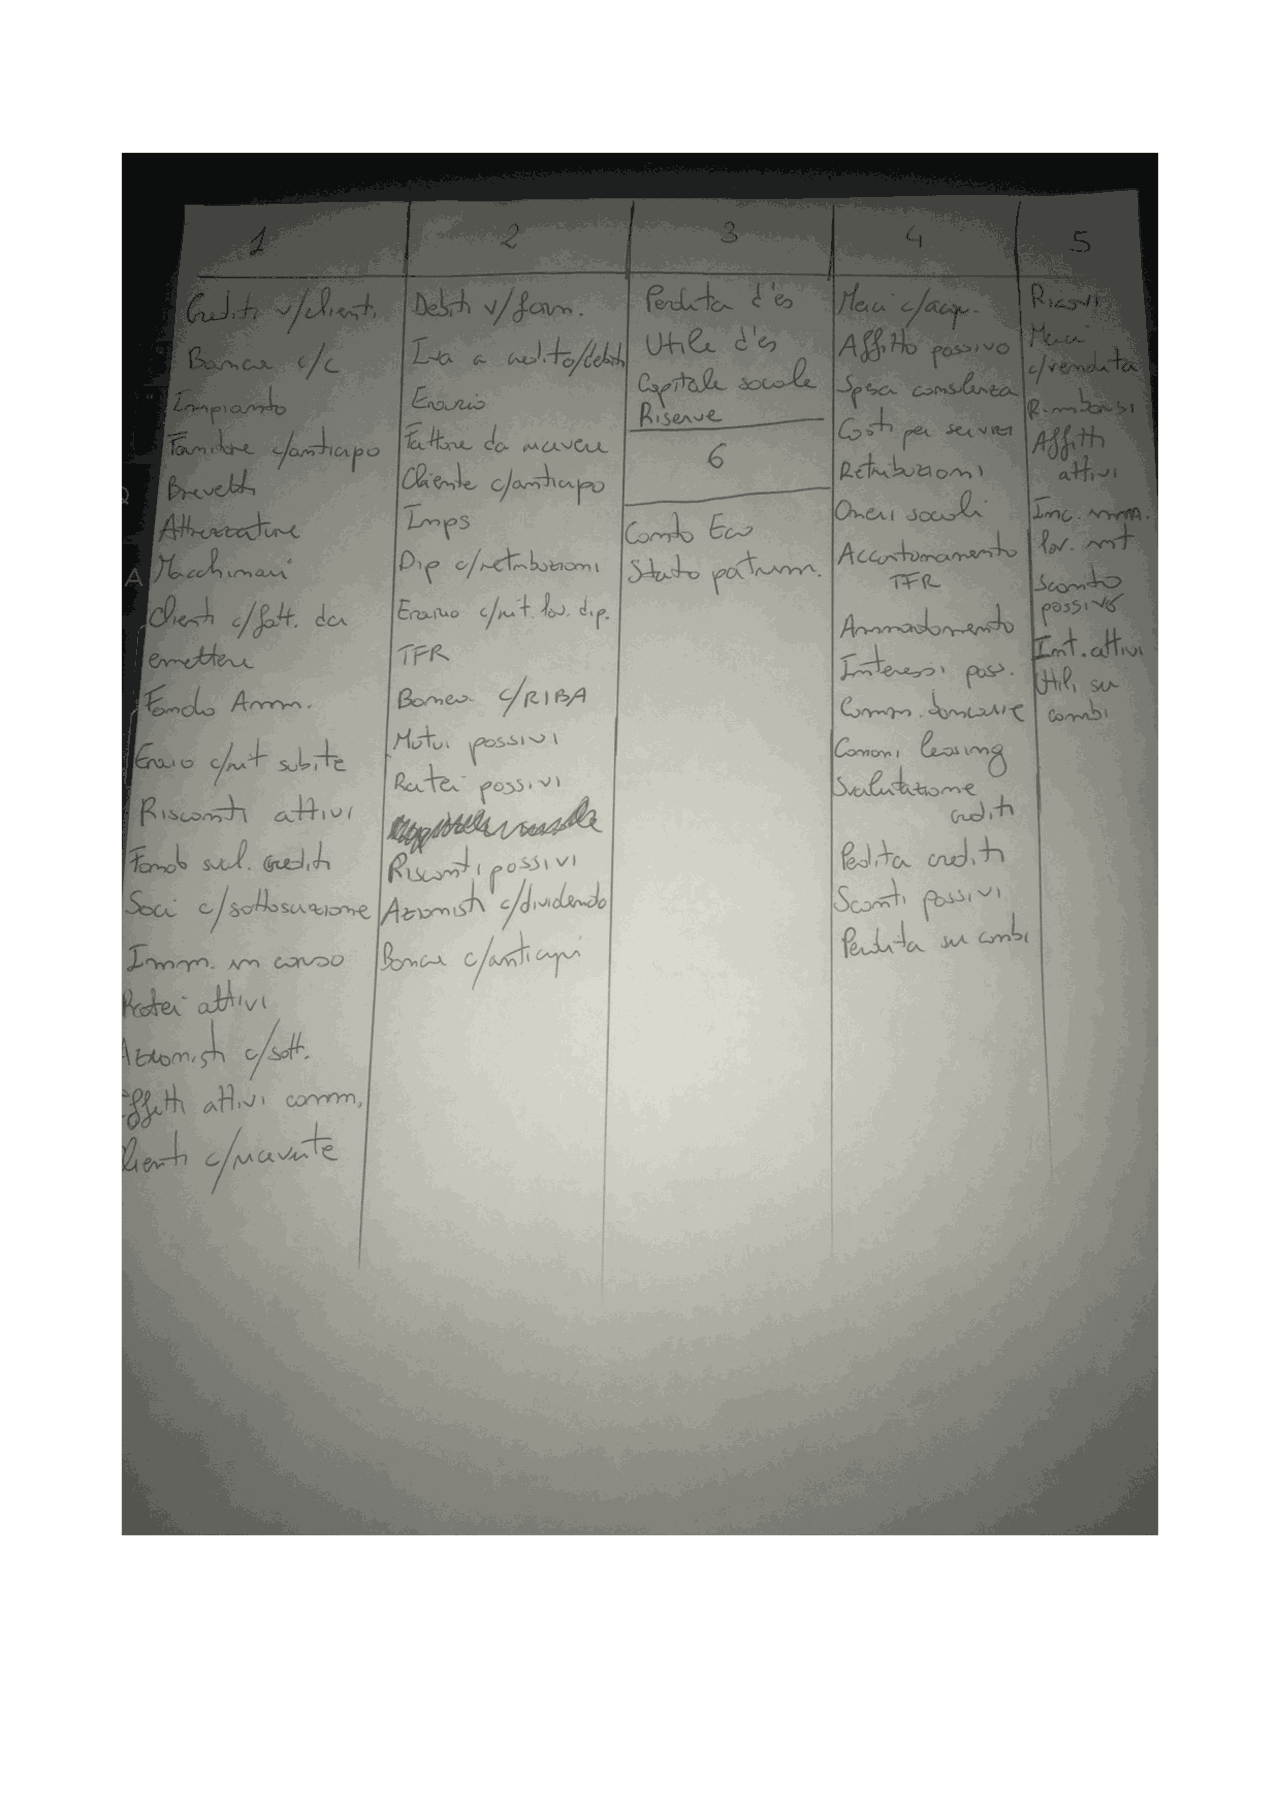 1
Crediti v/clienti
Banca c/c
Impianto
Fornitore c/anticipo
Brevetti
Attrezzature
Macchinari
Clienti c/fatt. da
emettere
Fondo Amm.
Erario c/rit subite
Risconti attivi
Fondo sval. crediti
Soci c/sottoscrizione
Imm. in corso
Ratei attivi
Azionisti c/sott.
Effetti attivi comm.
c/ricevute
2
Debiti v/forn.
Iva a credito/debito
Erario
Fatture da ricevere
Cliente c/anticipo
Imps
Dip c/retribuzioni
Erario c/rit. lav. dip.
TFR
Banca c/RIBA
Mutui passivi
Ratei passivi
Risconti passivi
Azionisti c/dividendo
Banca c/anticipi
3
Perdita d'es
Utile d'es
Capitale sociale
Riserve
6
Conto Eco
Stato patrim.
4
Merci c/acq.
Affitto passivo
Spesa consulenza
Costi per servizi
Retribuzioni
Oneri sociali
Accantonamento
TFR
Ammortamento
Interessi pass.
Comm. bancarie
Canoni leasing
Svalutazione
crediti
Perdita crediti
Sconti passivi
Perdita su cambi
5
Ricavi
Merci
c/vendita
Rimborsi
Affitti
attivi
Inc. imm.
lav. int
Sconto
passivo
Int. attivi
Utili su
cambi